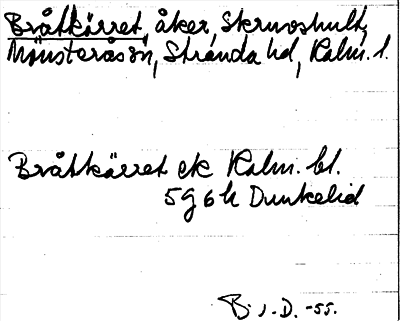 Bråtkärret, åker, Skruvshult,
Mönsterås sn, Stranda hd, Kalm. l.
Bråtkärret ek Kalm. bl.
5g6h Dunkelid
B. J-D. -55.